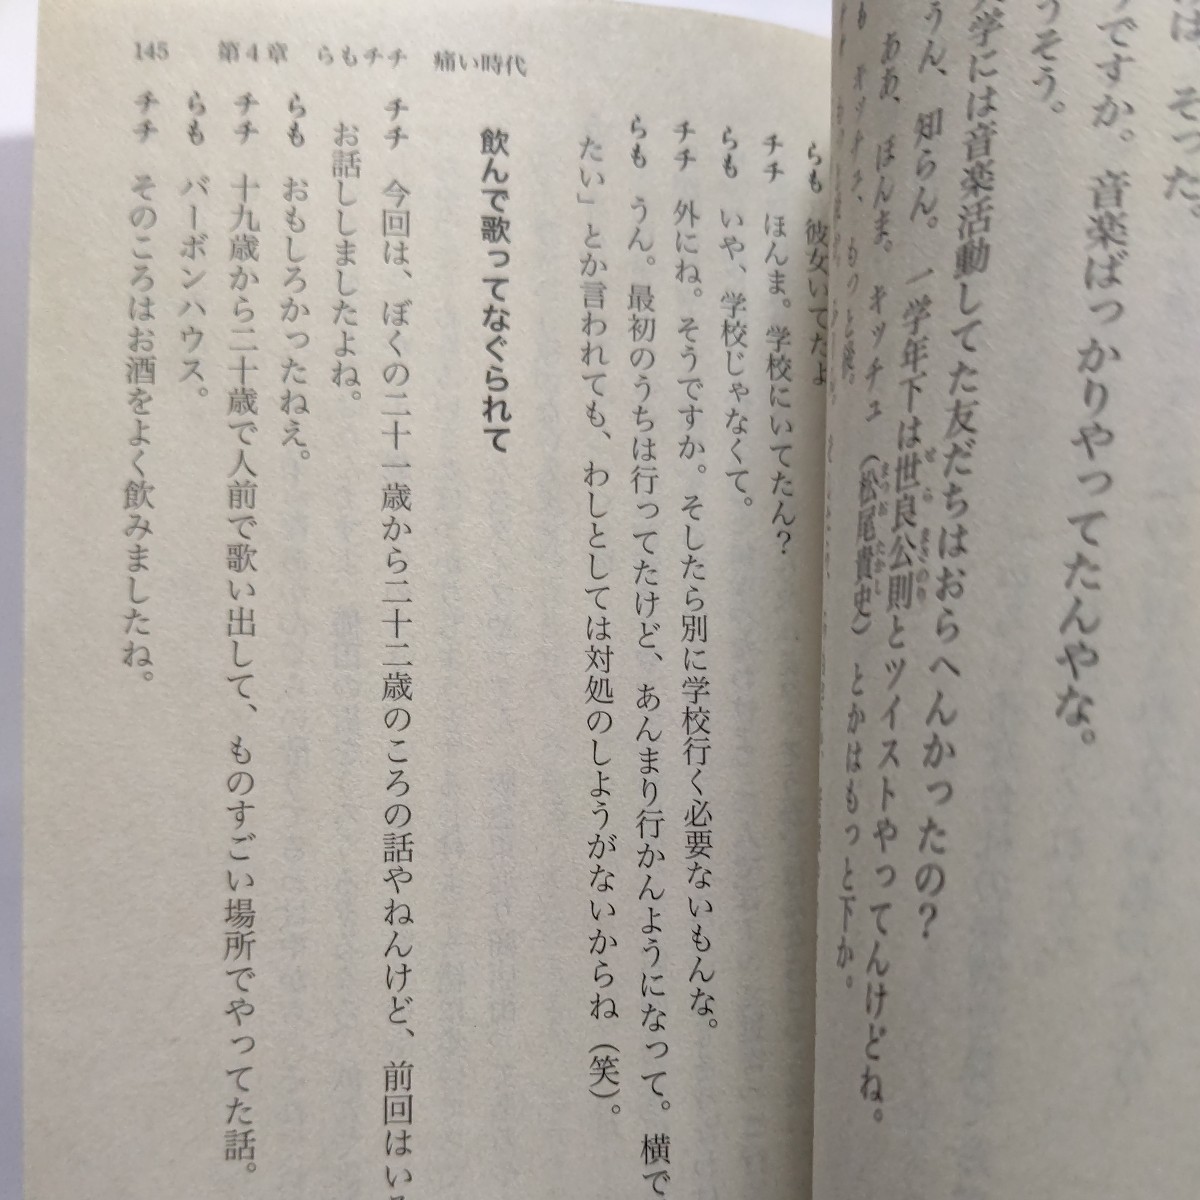 は、そった。
ですか。音楽ばっかりやってたんやな。
うそう。
学には音楽活動してた友だちはおらへんかったの?
うん、知らん。一学年下は世良公則とツイストやってんけどね。
ああ、ほんま。キッチュ(松尾貴史)とかはもっと下か。
も キッチュ、ものと後。
145 第4章 らもチチ 痛い時代
らも 彼女いてたよ
チチ ほんま。学校にいてたん?
らも いや、学校じゃなくて。
チチ 外にね。そうですか。そしたら別に学校行く必要ないもんな。
らも うん。最初のうちは行ってたけど、あんまり行かんようになって。横で
たい」とか言われても、わしとしては対処のしようがないからね(笑)。
飲んで歌ってなぐられて
チチ 今回は、ぼくの二十一歳から二十二歳のころの話やねんけど、前回はい
お話ししましたよね。
らも おもしろかったねえ。
チチ 十九歳から二十歳で人前で歌い出して、ものすごい場所でやってた話。
らも バーボンハウス。
チチ そのころはお酒をよく飲みましたね。